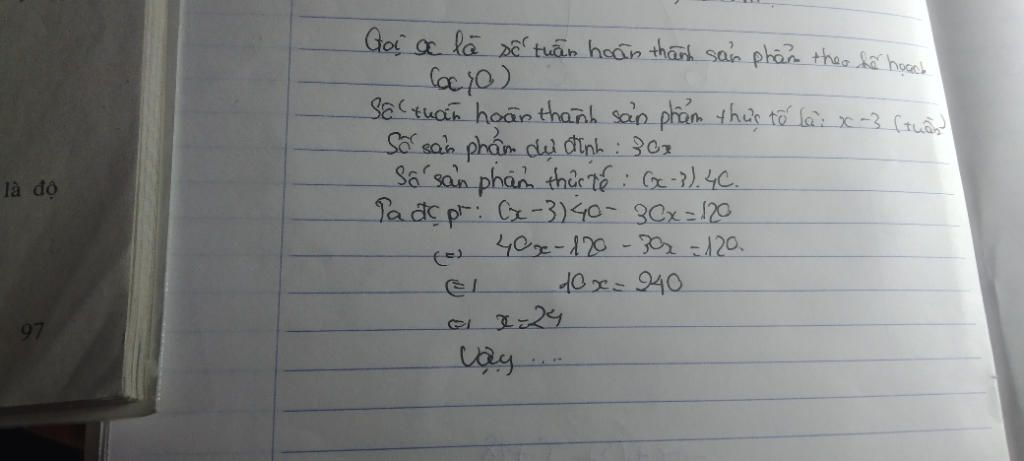 Gọi x là số tuần hoàn thành sản phẩm theo kế hoạch
(x>0)
Số tuần hoàn thành sản phẩm thực tế là: x-3 (tuần)
Số sản phẩm dự định: 30x
là độ
Số sản phẩm thực tế: (x-3).40.
Ta đc pt: (x-3)40- 30x=120
(=) 40x-120 - 30x=120.
(=) 10x= 240
(=) x=24
97
Vậy ....